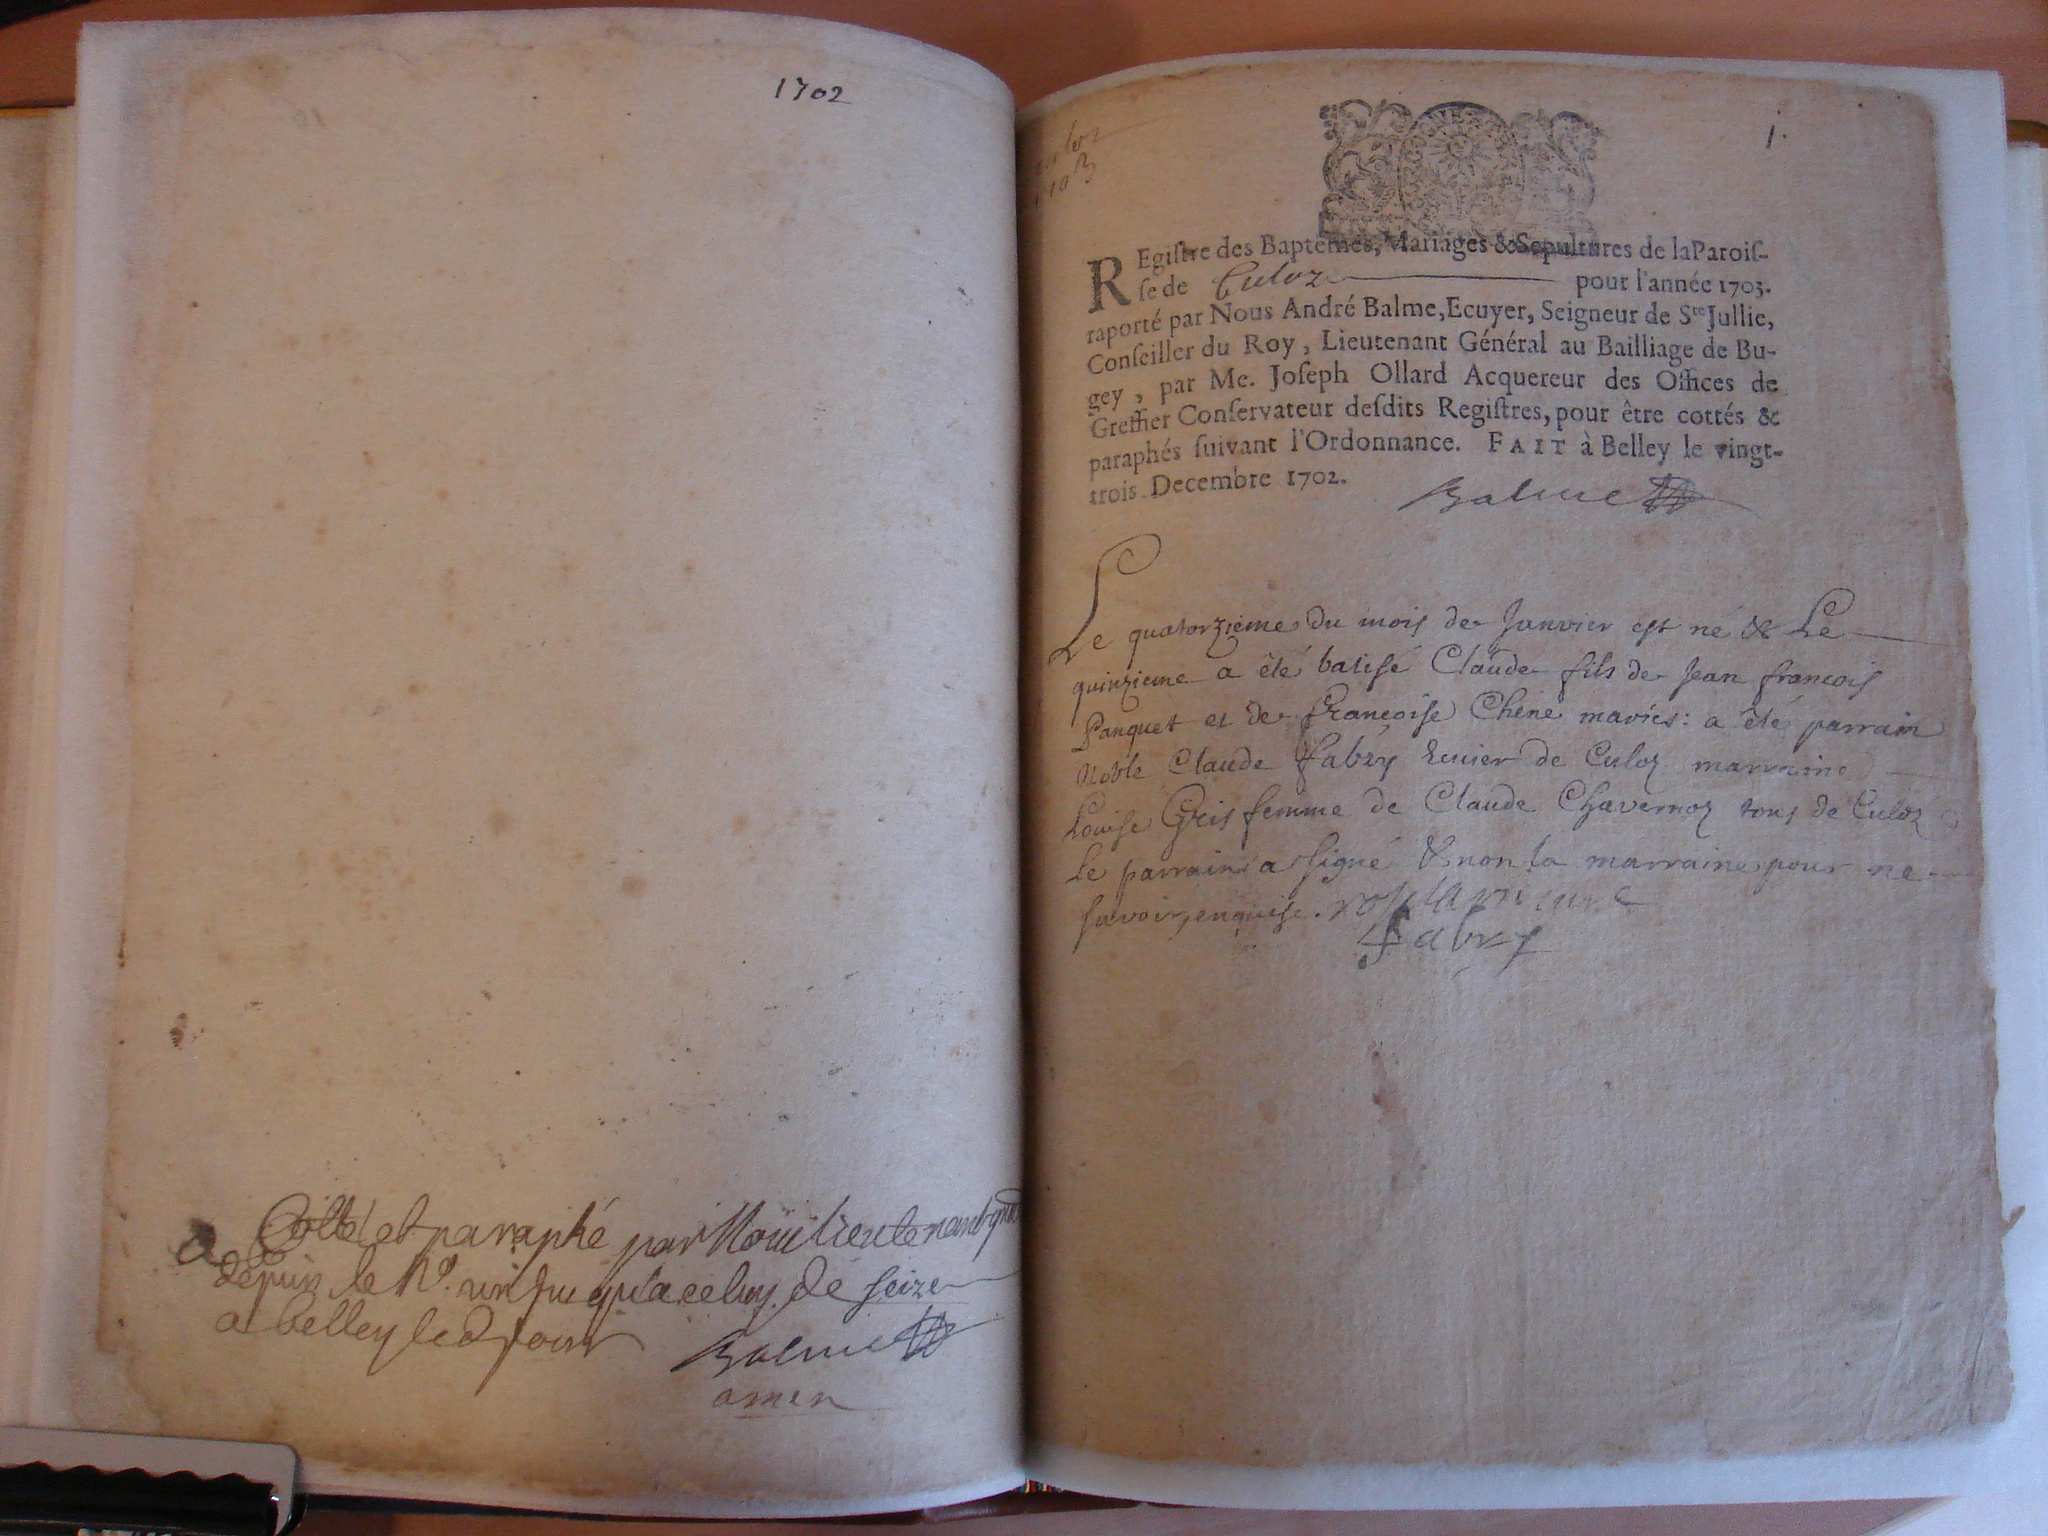 1702
Cotté et paraphé par Nous Lieutenant
depuis le No. un jusqu'a celuy de seize
a belley led jour
Balme
amen
1703
j.
REgiſtre des Baptêmes, Mariages & Sepultures de la Paroiſ-
ſe de Culoz pour l'année 1703.
raporté par Nous André Balme, Ecuyer, Seigneur de Ste Jullie,
Conſeiller du Roy, Lieutenant Général au Bailliage de Bu-
gey, par Me. Joſeph Ollard Acquereur des Offices de
Greffier Conſervateur deſdits Regiſtres, pour être cottés &
paraphés ſuivant l'Ordonnance. FAIT à Belley le vingt-
trois Decembre 1702.
Balme
Le quatorzieme du mois de Janvier est né & Le
quinzieme a été batisé Claude fils de Jean françois
Panquet et de Françoise Chêne mariés : a été parrain
Noble Claude fabry Ecuier de Culoz marraine
Louise Gris femme de Claude Chavernoz tous de Culoz
Le parrain a signé & non la marraine pour ne
savoir, enquise. curé
fabry